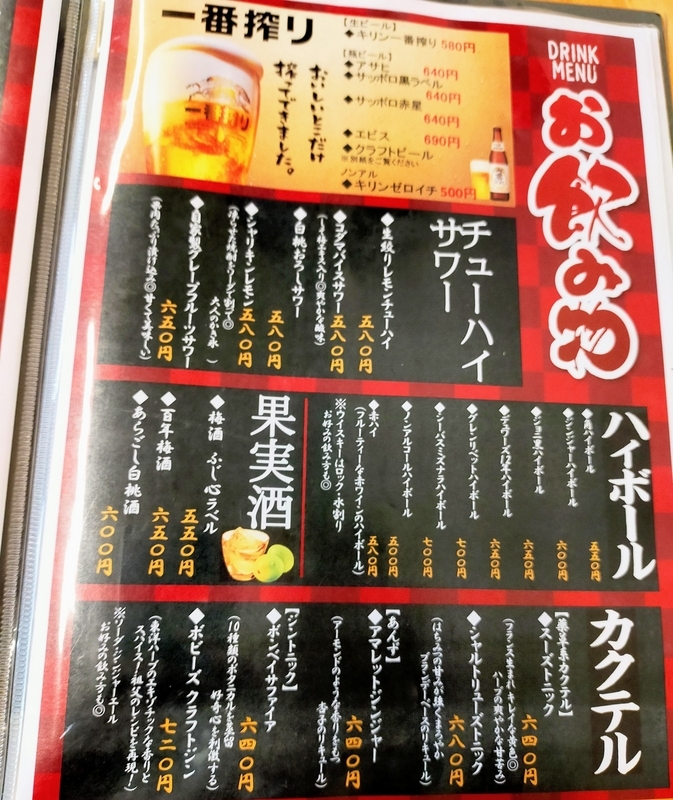 DRINK
MENU
お飲み物
一番搾り
一番搾り
おいしいとこだけ
搾ってできました。
【生ビール】
◆キリン一番搾り 580円
【瓶ビール】
◆アサヒ 640円
◆サッポロ黒ラベル 640円
◆サッポロ赤星 640円
◆エビス 690円
◆クラフトビール
※別紙をご覧ください
ノンアル
◆キリンゼロイチ 500円
チューハイ
サワー
◆生絞りレモンチューハイ 五八〇円
◆コダマバイスサワー 五八〇円
◆白桃おろしサワー 五八〇円
◆シャリキンレモン 五八〇円
大人のかき氷
◆自家製グレープフルーツサワー 六五〇円
ハイボール
◆角ハイボール 五五〇円
◆ジンジャーハイボール 六〇〇円
◆ジョニ黒ハイボール 六五〇円
◆デュワーズ12年ハイボール 六五〇円
◆グレンリベットハイボール 七〇〇円
◆シーバスミズナラハイボール 七〇〇円
◆ノンアルコールハイボール 五〇〇円
◆赤ハイ 五八〇円
(フルーティーな赤ワインのハイボール)
※ウイスキーはロック・水割り
お好みの飲み方も◎
果実酒
◆梅酒 ふじ心ラベル 五五〇円
◆百年梅酒 六五〇円
◆あらごし白桃酒 六〇〇円
カクテル
【薬草系カクテル】
◆スーズトニック 六四〇円
(フランス生まれ、キレイな黄色◎
ハーブの爽やかな甘苦み)
◆シャルトリューズトニック 六八〇円
(はちみつの甘みが強くまろやか
ブランデーベースのリキュール)
【あんず】
◆アマレットジンジャー 六四〇円
(アーモンドのような香りをもつ
杏子のリキュール)
【ジントニック】
◆ボンベイサファイア 六四〇円
(10種類のボタニカルを蒸留
好奇心を刺激する)
◆ボビーズ クラフトジン 七二〇円
(東洋ハーブのエキゾチックな香りと
スパイス!祖父のレシピを再現!)
※ソーダ・ジンジャーエール
お好みの飲み方も◎